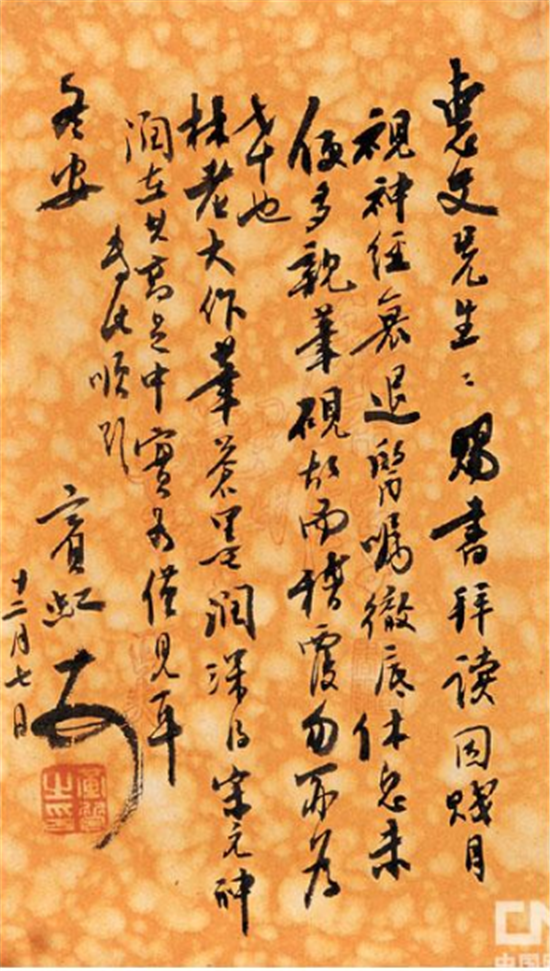 惠文先生〻賜書拜讀因賤目
視神經衰退醫嘱徹底休息未
便多親筆硯故而稽覆勿
也
林老大作筆蒼墨潤深得宋元神
潤在其高足中實為僅見耳
專此順頌
冬安
賓虹
十二月七日
CN
中国